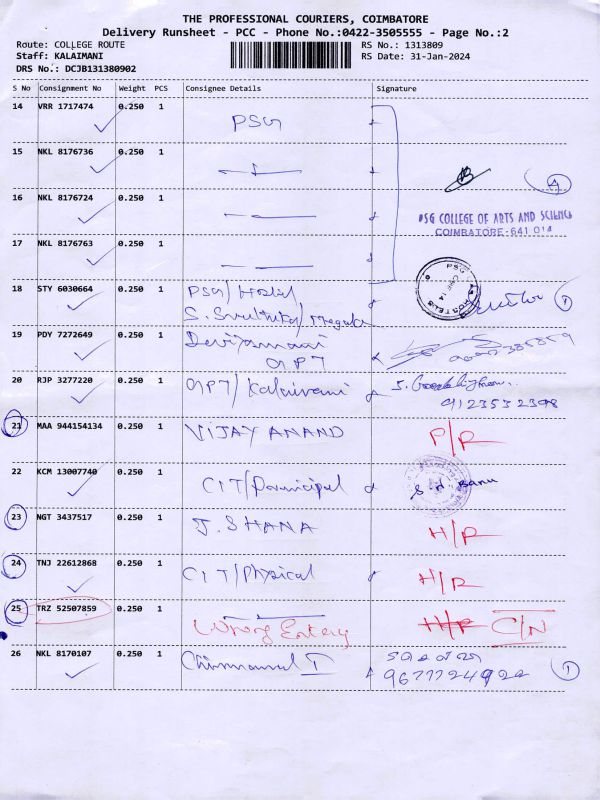 THE PROFESSIONAL COURIERS, COIMBATORE
Delivery Runsheet - PCC - Phone No.:0422-3505555 - Page No.:2
Route: COLLEGE ROUTE RS No.: 1313809
Staff: KALAIMANI RS Date: 31-Jan-2024
DRS No.: DCJB131380902
S No Consignment No Weight PCS Consignee Details Signature
14 VRR 1717474 0.250 1 PSG
15 NKL 8176736 0.250 1
A
16 NKL 8176724 0.250 1
PSG COLLEGE OF ARTS AND SCIENCE
COIMBATORE-641 014
17 NKL 8176763 0.250 1
18 STY 6030664 0.250 1 PSG/Hostel
PSG CAS HOSTELS
1
19 PDY 7272649 0.250 1 Deviyamani
GPT
20 RJP 3277220 0.250 1 GPT/Kalaivani
9123532398
21 MAA 944154134 0.250 1 VIJAY ANAND P/R
22 KCM 13007740 0.250 1 CIT/Principal S.H. Banu
23 NGT 3437517 0.250 1 J. SHANA H/R
24 TNJ 22612868 0.250 1 CIT/Physical H/R
25 TRZ 52507859 0.250 1 H/R C/N
Wrong Entery
26 NKL 8170107 0.250 1
9677724922
1